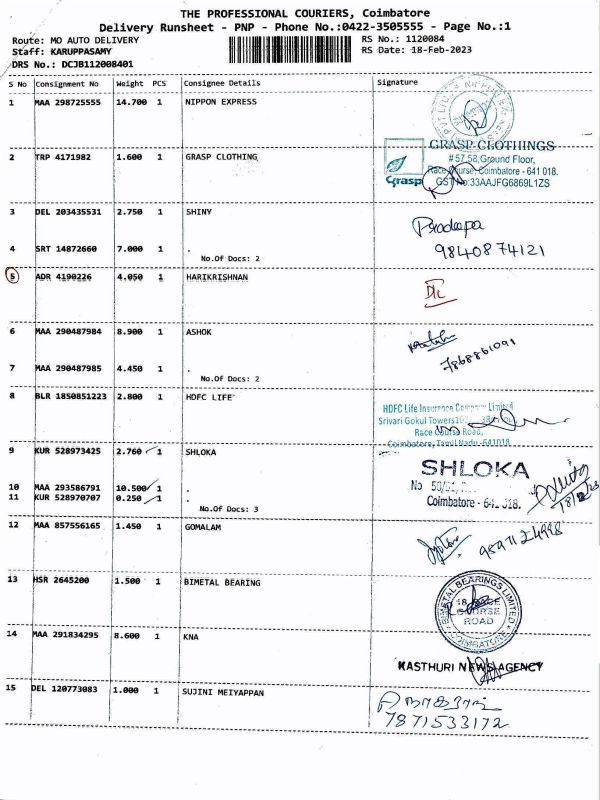 THE PROFESSIONAL COURIERS, Coimbatore
Delivery Runsheet - PNP - Phone No.:0422-3505555 - Page No.:1
Route: MO AUTO DELIVERY RS No.: 1120084
Staff: KARUPPASAMY RS Date: 18-Feb-2023
DRS No.: DCJB112008401
S No Consignment No Weight PCS Consignee Details Signature
1 MAA 298725555 14.700 1 NIPPON EXPRESS
GRASP CLOTHINGS
2 TRP 4171982 1.600 1 GRASP CLOTHING
# 57,58,Ground Floor,
Race Course, Coimbatore - 641 018.
Grasp GST No:33AAJFG6869L1ZS
3 DEL 203435531 2.750 1 SHINY
Pradeepa
4 SRT 14872660 7.000 1 .
No.Of Docs: 2
9840874121
5 ADR 4190226 4.050 1 HARIKRISHNAN
6 MAA 290487984 8.900 1 ASHOK
7868861091
7 MAA 290487985 4.450 1 .
No.Of Docs: 2
8 BLR 1850851223 2.800 1 HDFC LIFE
HDFC Life Insurance Company Limited
Srivari Gokul Towers
Race Course Road,
Coimbatore, Tamil Nadu-641018
9 KUR 528973425 2.760 1 SHLOKA
SHLOKA
10 MAA 293586791 10.500 1
No
11 KUR 528970707 0.250 1 .
Coimbatore - 641 018.
No.Of Docs: 3
12 MAA 857556165 1.450 1 GOMALAM
13 HSR 2645200 1.500 1 BIMETAL BEARING
BIMETAL BEARINGS LIMITED
18, RACE
COURSE
ROAD
COIMBATORE
14 MAA 291834295 8.600 1 KNA
KASTHURI NEWS AGENCY
15 DEL 120773083 1.000 1 SUJINI MEIYAPPAN
7871533172